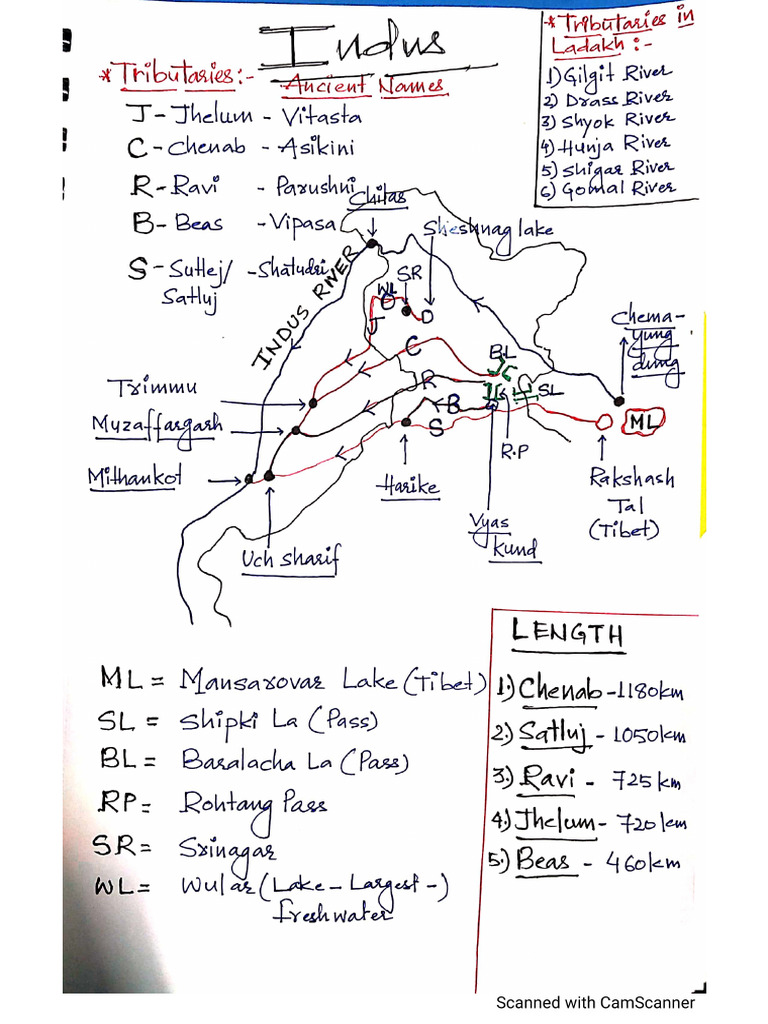 Indus
*Tributaries:-
Ancient Names
J-Jhelum - Vitasta
C-Chenab - Asikini
R-Ravi - Parushni
B-Beas - Vipasa
S-Sutlej/ - Shatudri
Satluj
*Tributaries in
Ladakh:-
1) Gilgit River
2) Drass River
3) Shyok River
4) Hunja River
5) Shigar River
6) Gomal River
Chilas
Sheshnag lake
INDUS RIVER
SR
WL
J
C
BL
R
B
SL
S
R.P
Chema-
yung
dung
ML
Trimmu
Muzaffargarh
Mithankot
Harike
Rakshash
Tal
(Tibet)
Vyas
Kund
Uch sharif
ML = Mansarovar Lake (Tibet)
SL = Shipki La (Pass)
BL = Baralacha La (Pass)
RP = Rohtang Pass
SR = Srinagar
WL = Wular (Lake-Largest-)
freshwater
LENGTH
1.) Chenab - 1180km
2.) Satluj - 1050km
3.) Ravi - 725 km
4.) Jhelum - 720km
5.) Beas - 460km
Scanned with CamScanner